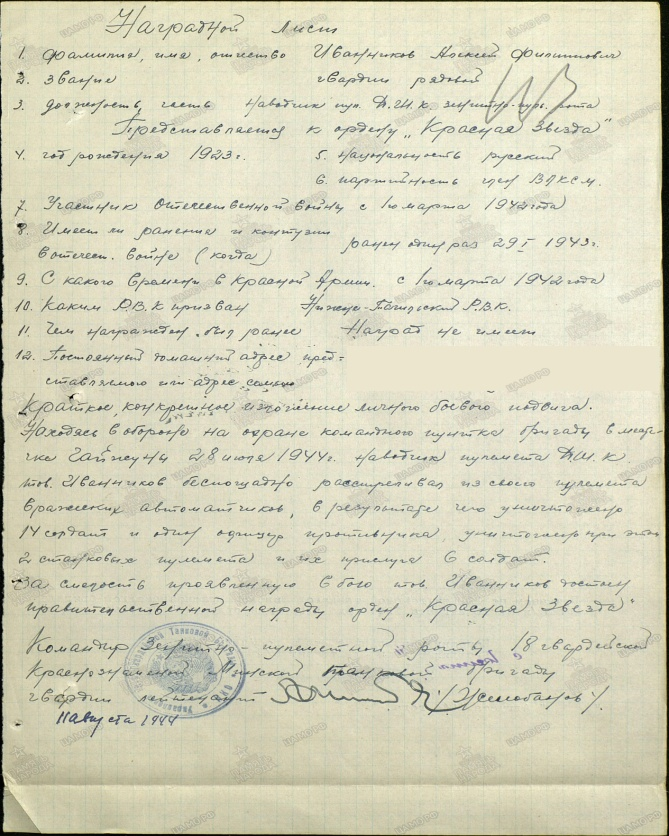 Наградной лист
1. Фамилия, имя, отчество Иванников Алексей Филиппович
2. звание гвардии рядовой
3. должность, часть наводчик пул. Д.Ш.К. зенитно-пул. рота
Представляется к ордену „Красная Звезда“
4. год рождения 1923 г. 5. национальность русский
6. партийность член ВЛКСМ.
7. Участник отечественной войны с 1го марта 1942 года
8. Имеет ли ранения и контузии
в отечест. войне (когда) ранен один раз 29 I 1943 г.
9. С какого времени в Красной Армии. с 1го марта 1942 года
10. Каким Р.В.К призван Нижне-Тагильский Р.В.К.
11. Чем награжден был ранее Наград не имеет
12. Постоянный домашний адрес пред=
ставляемого или адрес семьи
Краткое, конкретное изложение личного боевого подвига.
Находясь в обороне на охране командного пункта бригады в месте-
чке Гайжуны 28 июля 1944 г. наводчик пулемета Д.Ш.К
тов. Иванников беспощадно расстреливал из своего пулемета
вражеских автоматчиков, в результате чего уничтожено
14 солдат и один офицер противника, уничтожено при этом
2 станковых пулемета и их прислуга 6 солдат.
За смелость проявленную в бою тов. Иванников достоин
правительственной награды орден „Красная Звезда“
Командир Зенитно-пулеметной роты 18 гвардейской
Краснознаменной Минской Танковой бригады
гвардии лейтенант
11 августа 1944